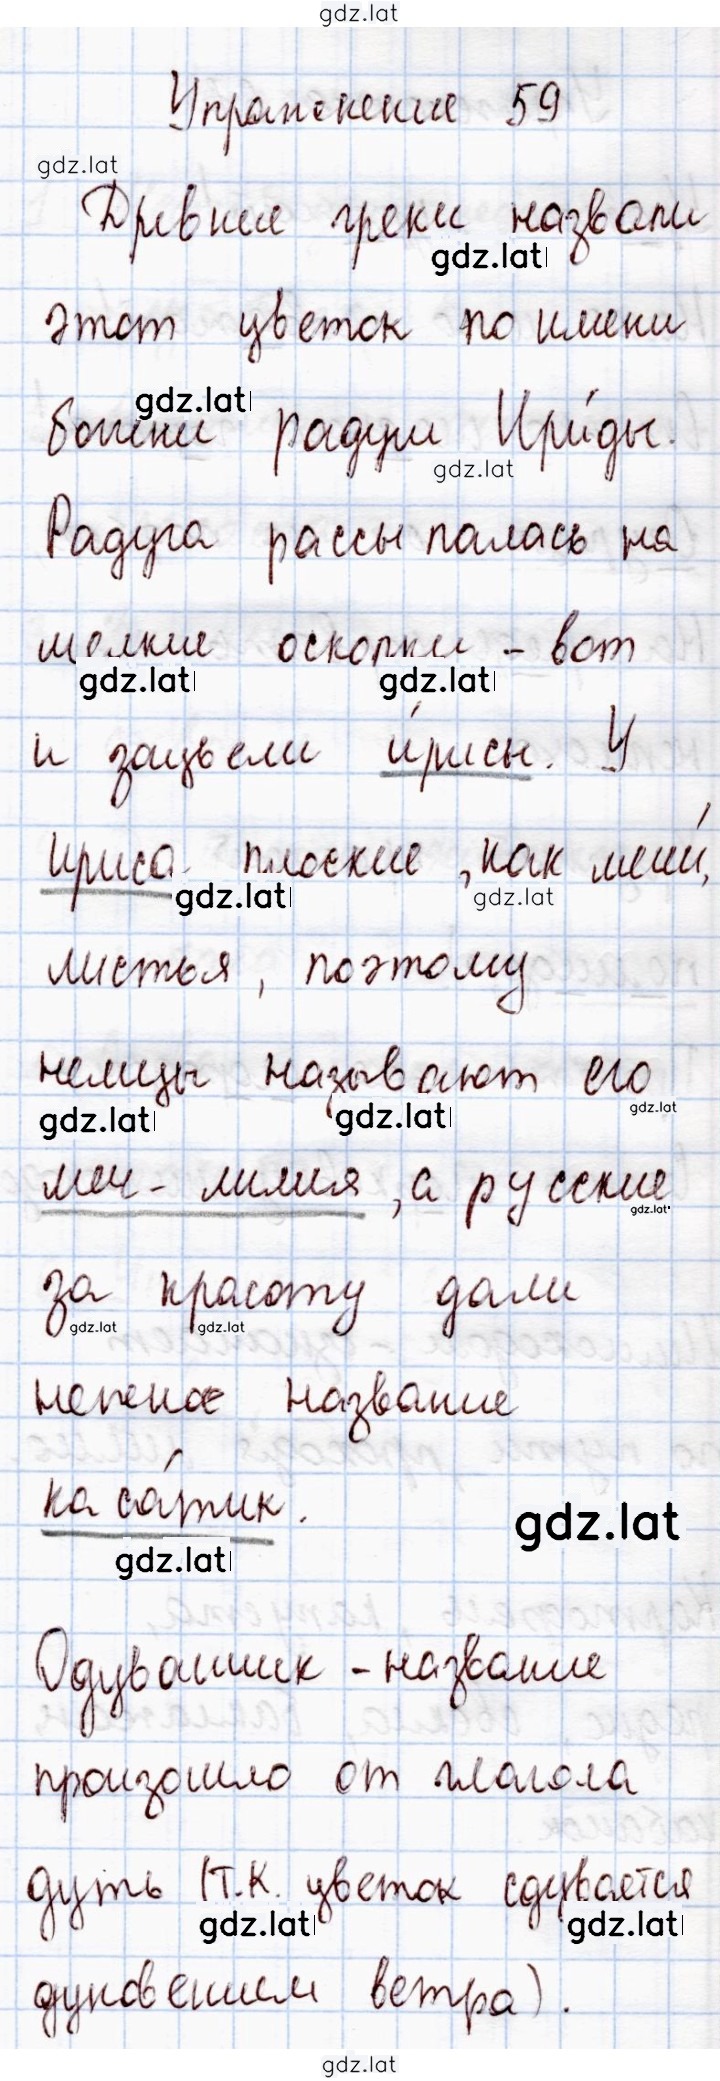 gdz.lat
Упражнение 59
gdz.lat
Древние греки назвали
gdz.lat
этот цветок по имени
gdz.lat
богини радуги Ири́ды.
gdz.lat
Радуга рассыпалась на
мелкие осколки - вот
gdz.lat gdz.lat
и зацвели и́рисы. У
ириса плоские, как мечи́,
gdz.lat gdz.lat
листья, поэтому
немцы называют его
gdz.lat gdz.lat gdz.lat
меч - лилия, а русские
gdz.lat
за красоту дали
gdz.lat gdz.lat
нежное название
каса́тик.
gdz.lat gdz.lat
Одуванчик - название
произошло от глагола
дуть (т.к. цветок сдувается
gdz.lat gdz.lat
дуновением ветра).
gdz.lat